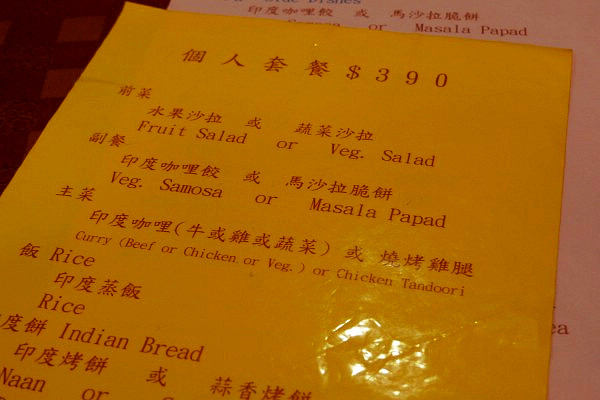 Side Dishes
印度咖哩餃 或 馬沙拉脆餅
Samosa or Masala Papad
個人套餐$390
前菜
水果沙拉 或 蔬菜沙拉
Fruit Salad or Veg. Salad
副餐
印度咖哩餃 或 馬沙拉脆餅
Veg. Samosa or Masala Papad
主菜
印度咖哩(牛或雞或蔬菜) 或 燒烤雞腿
Curry (Beef or Chicken or Veg.) or Chicken Tandoori
飯 Rice
印度蒸飯
Rice
度餅 Indian Bread
印度烤餅 或 蒜香烤餅
Naan or